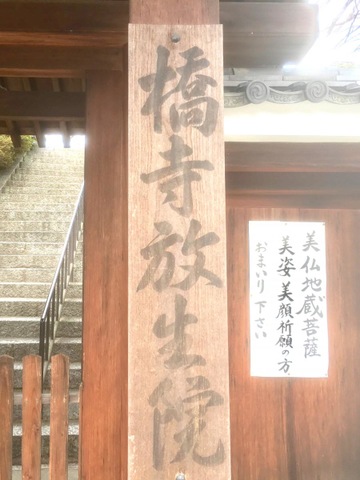 橋寺放生院
美仏地蔵菩薩
美姿美顔祈願の方
おまいり下さい